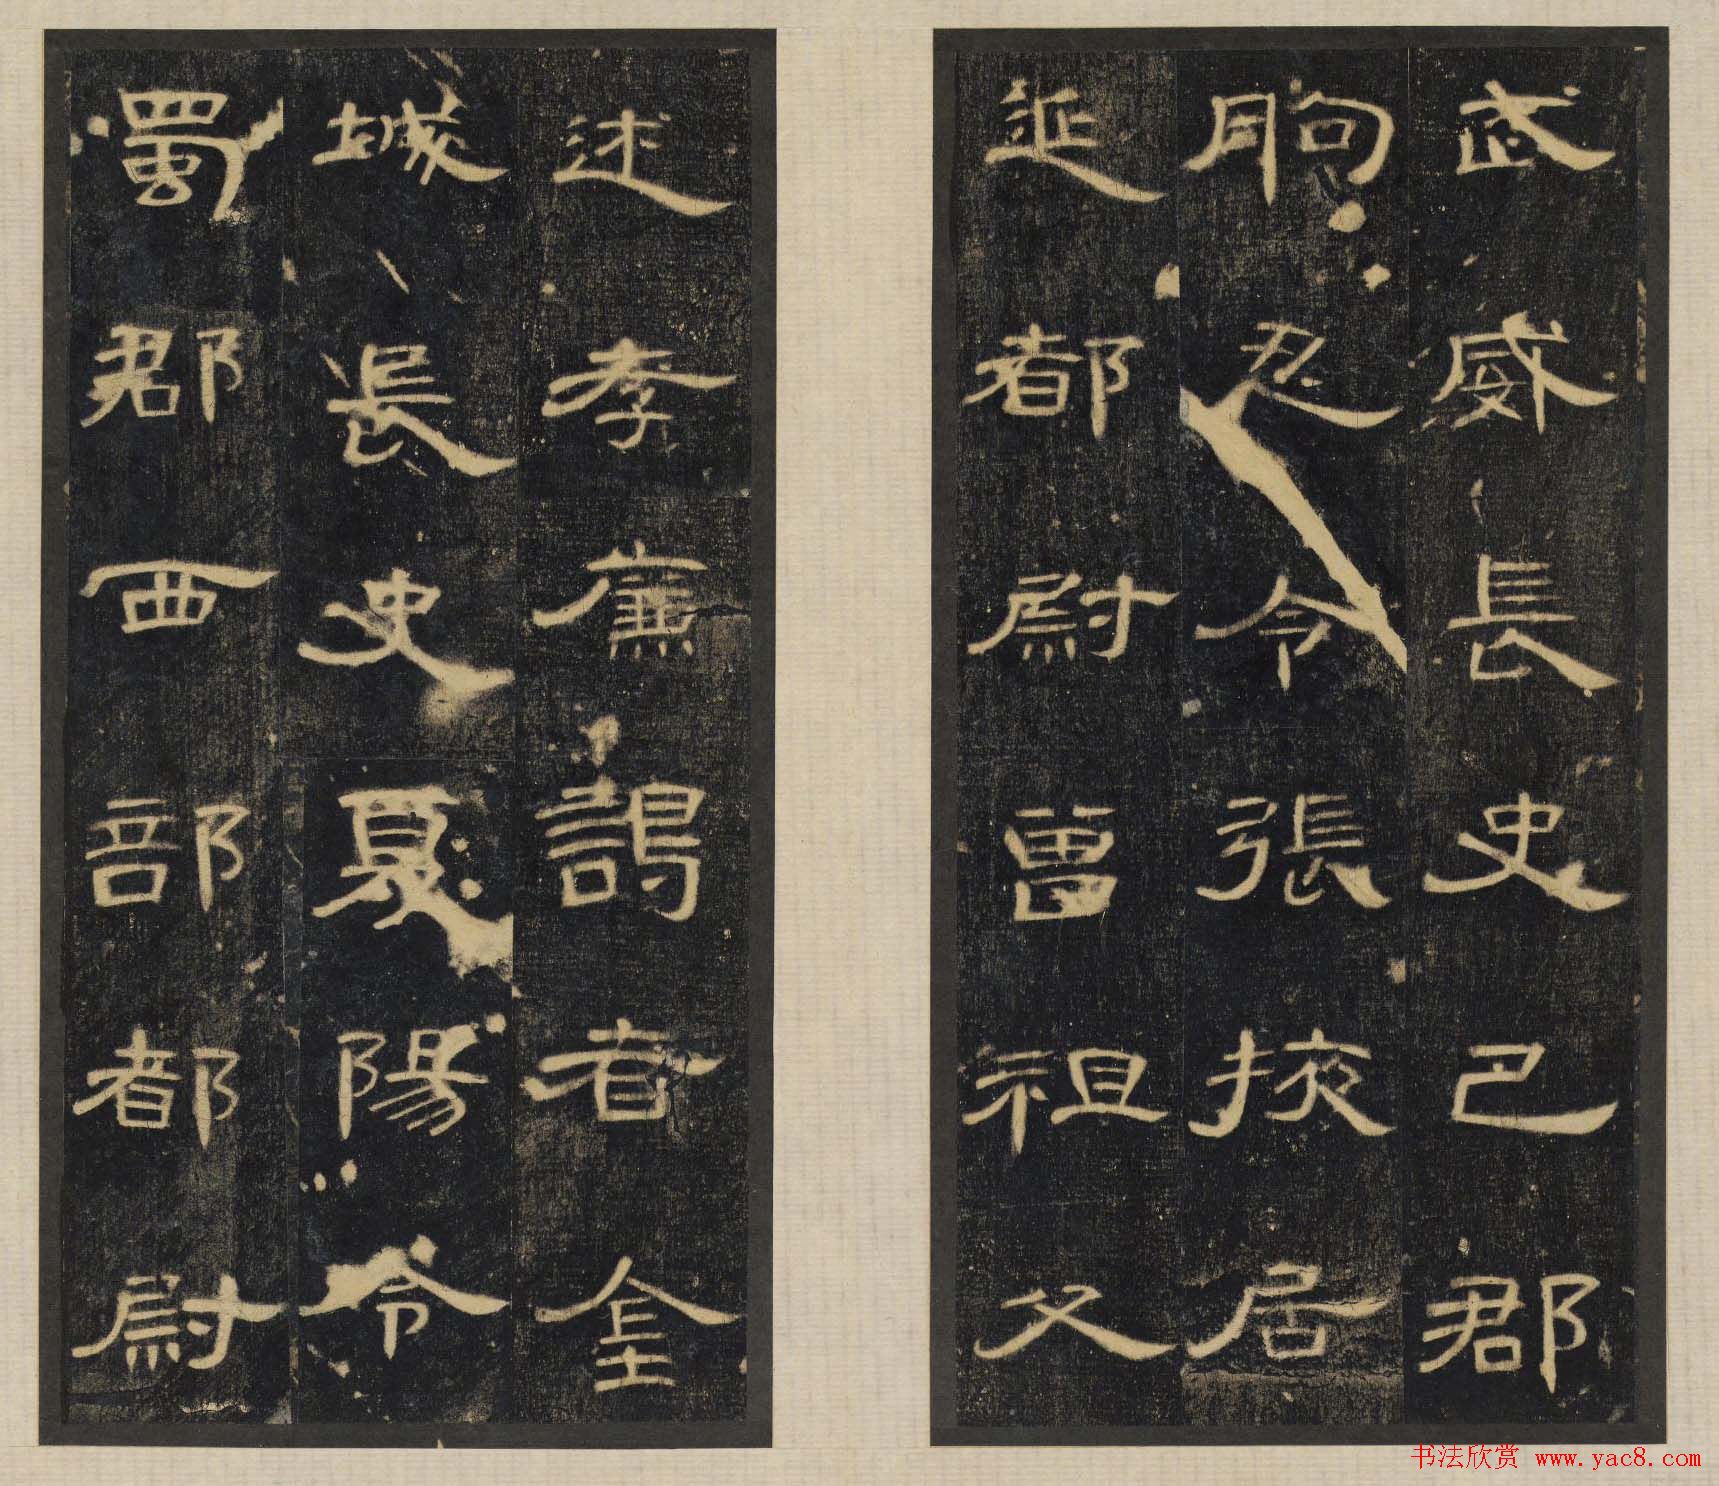 武威長史巴郡
朐忍令張掖居
延都尉曾祖父
述孝廉謁者金
城長史夏陽令
蜀郡西部都尉
书法欣赏 www.yac8.com